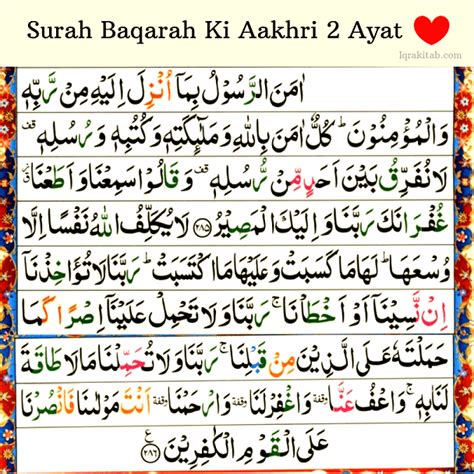 Surah Baqarah Ki Aakhri 2 Ayat
Iqrakitab.com
اٰمَنَ الرَّسُوْلُ بِمَاۤ اُنْزِلَ اِلَيْهِ مِنْ رَّبِّهٖ
وَالْمُؤْمِنُوْنَ ؕ كُلٌّ اٰمَنَ بِاللّٰهِ وَمَلٰٓئِكَتِهٖ وَكُتُبِهٖ وَرُسُلِهٖ قف
لَا نُفَرِّقُ بَيْنَ اَحَدٍ مِّنْ رُّسُلِهٖ قف وَقَالُوْا سَمِعْنَا وَاَطَعْنَا ز
غُفْرَانَكَ رَبَّنَا وَاِلَيْكَ الْمَصِيْرُ ۝۲۸۵ لَا يُكَلِّفُ اللّٰهُ نَفْسًا اِلَّا
وُسْعَهَا ؕ لَهَا مَا كَسَبَتْ وَعَلَيْهَا مَا اكْتَسَبَتْ ؕ رَبَّنَا لَا تُؤَاخِذْنَاۤ
اِنْ نَّسِيْنَاۤ اَوْ اَخْطَاْنَا ۚ رَبَّنَا وَلَا تَحْمِلْ عَلَيْنَاۤ اِصْرًا كَمَا
حَمَلْتَهٗ عَلَى الَّذِيْنَ مِنْ قَبْلِنَا ۚ رَبَّنَا وَلَا تُحَمِّلْنَا مَا لَا طَاقَةَ
لَنَا بِهٖ ۚ وَاعْفُ عَنَّا وقفة وَاغْفِرْ لَنَا وقفة وَارْحَمْنَا وقفة اَنْتَ مَوْلٰىنَا فَانْصُرْنَا
عَلَى الْقَوْمِ الْكٰفِرِيْنَ ۝۲۸۶ ع